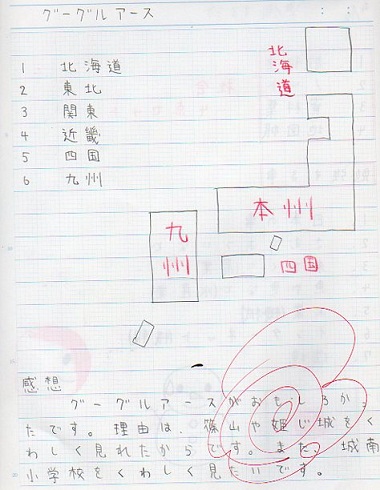 グーグルアース
1 北海道
2 東北
3 関東
4 近畿
5 四国
6 九州
北海道
本州
九州
四国
感想
グーグルアースがおもしろかっ
たです。理由は、篠山や姫じ城をく
わしく見れたからです。また、城南
小学校をくわしく見たいです。